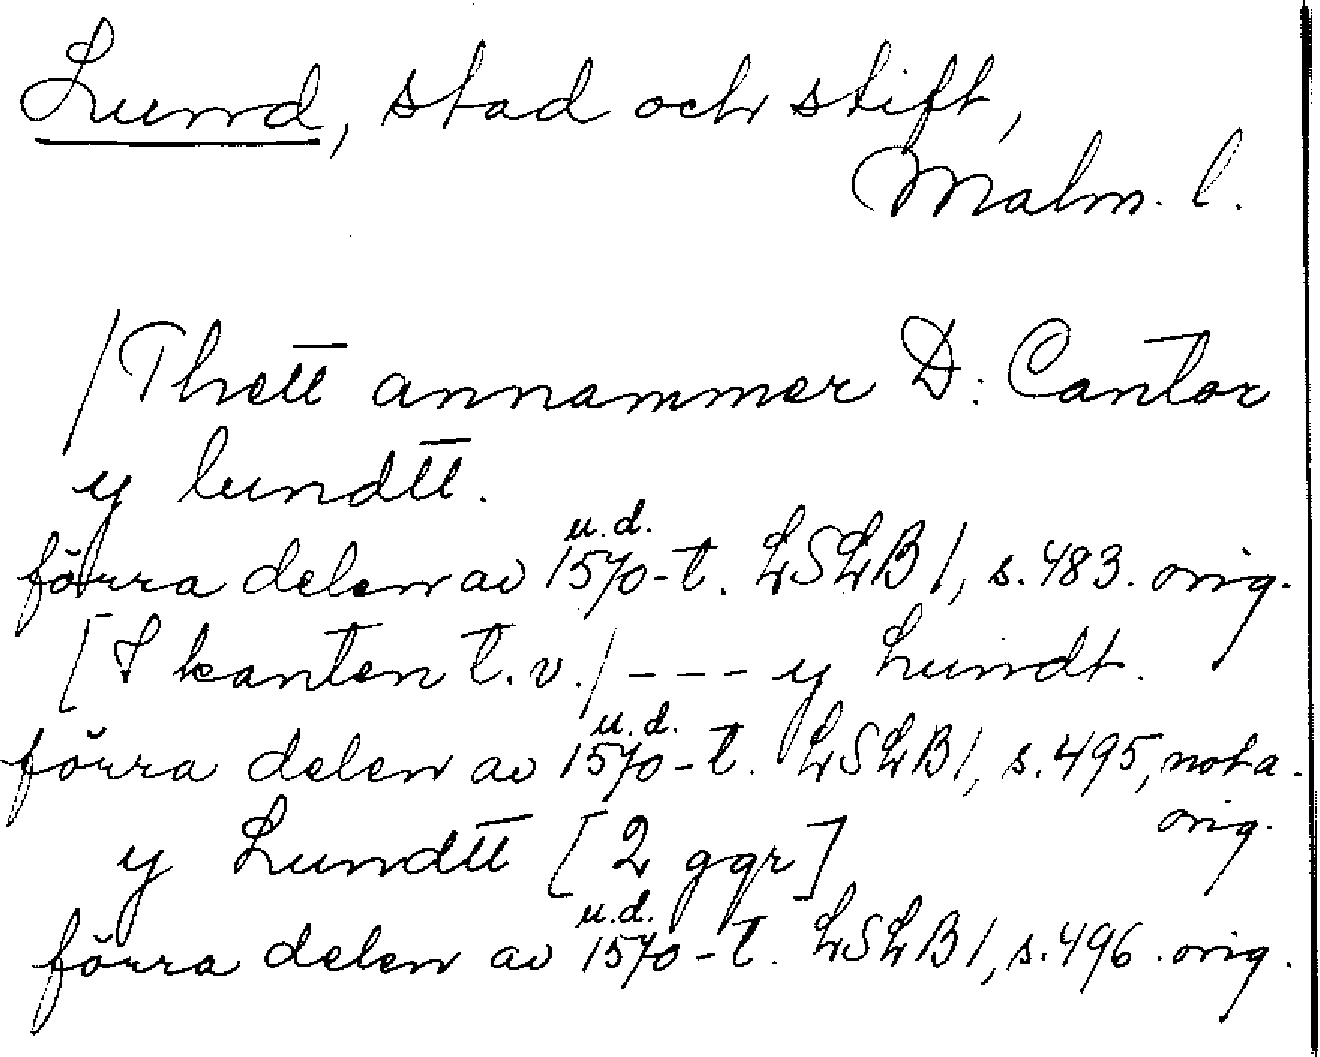 Lund, stad och stift,
Malm. l.
/Thett annammer D: Cantor
y lundtt.
u.d.
förra delen av 1570-t. LSLB1, s. 483. orig.
[I kanten t.v./ --- y Lundt.
u.d.
förra delen av 1570-t. LSLB1, s. 495, nota.
orig.
y Lundtt [2 ggr]
u.d.
förra delen av 1570-t. LSLB1, s. 496. orig.